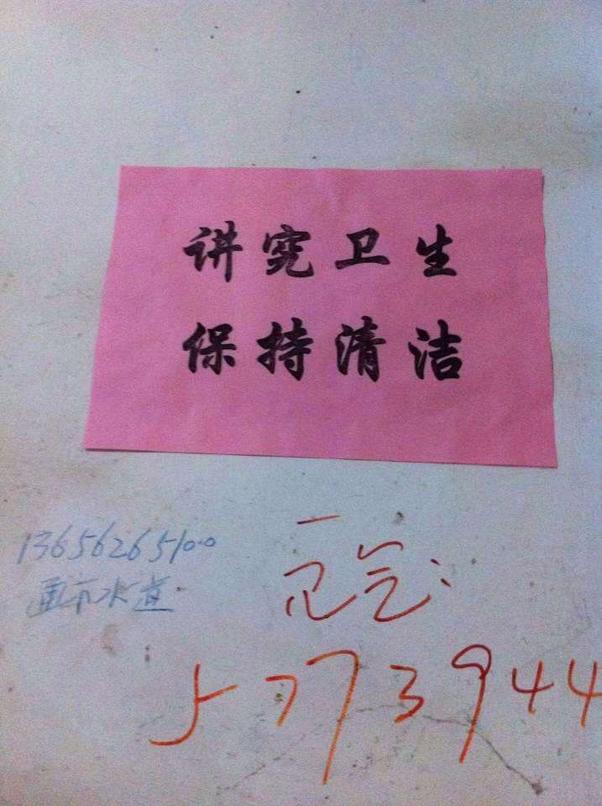 讲究卫生
保持清洁
13656265100
通下水道
气:
5773944